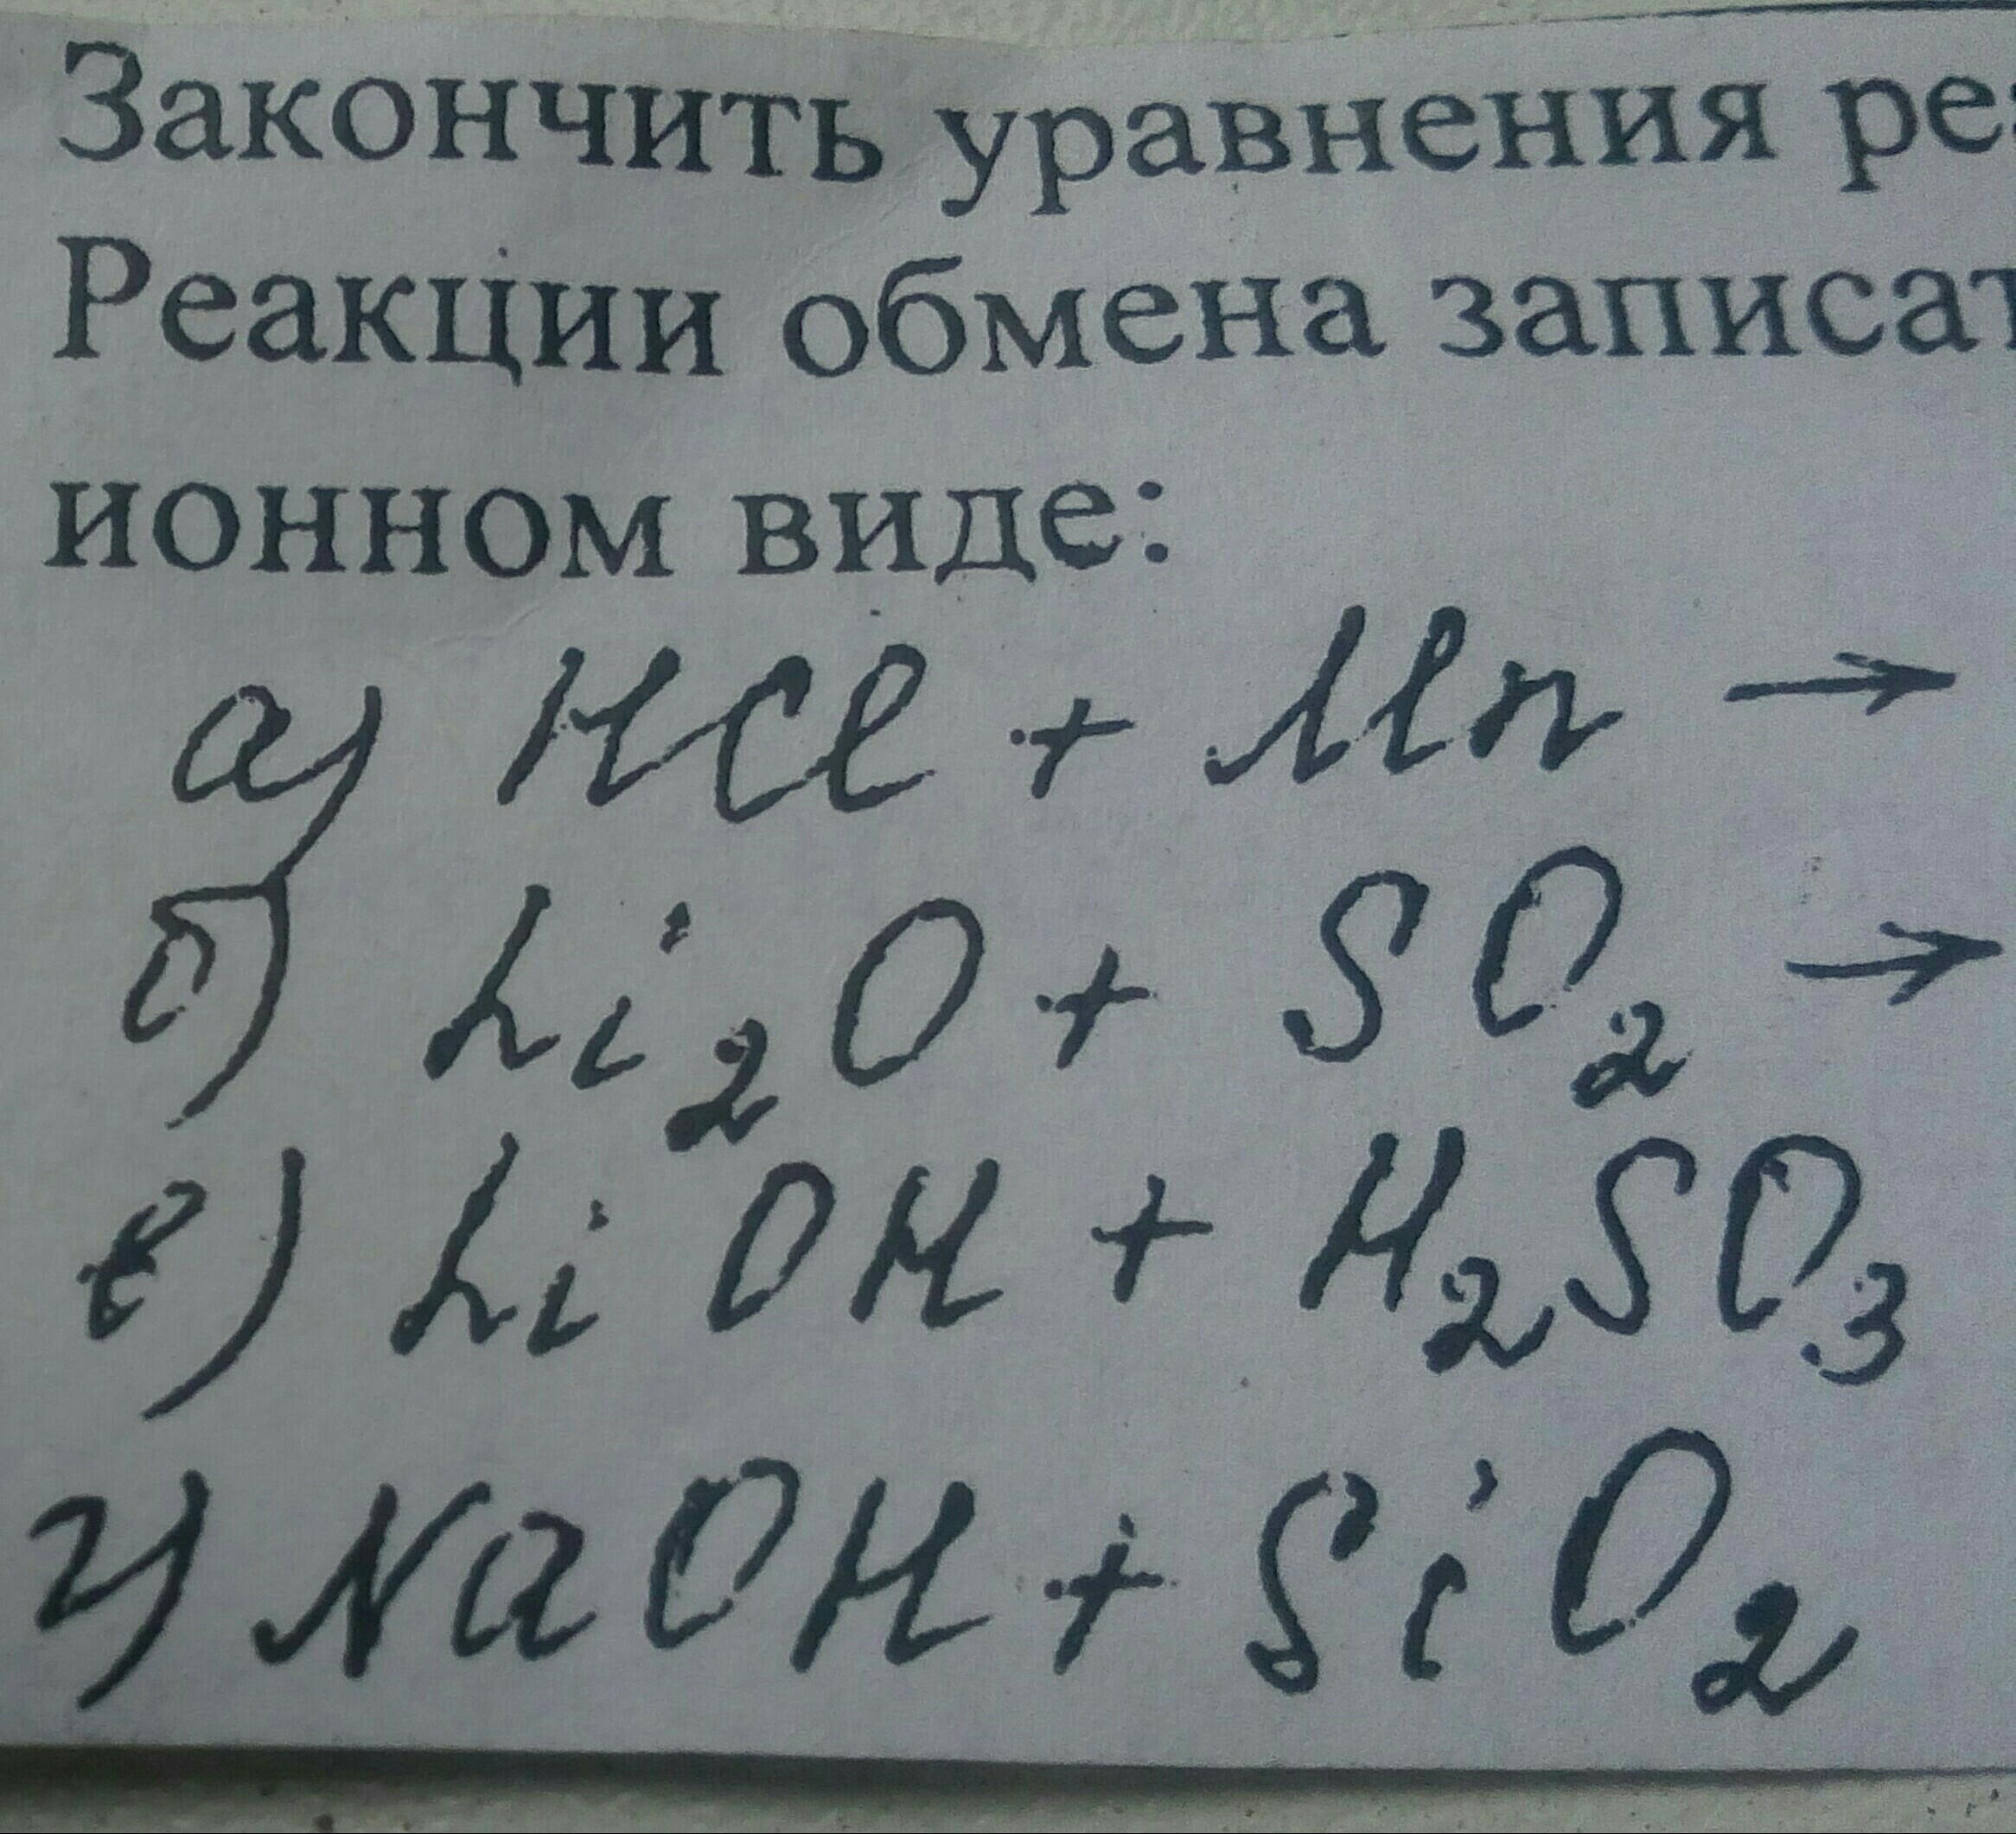 Закончить уравнения ре
Реакции обмена записат
ионном виде:
а) HCl + Mn →
б) Li₂O + SO₂ →
в) LiOH + H₂SO₃
г) NaOH + SiO₂